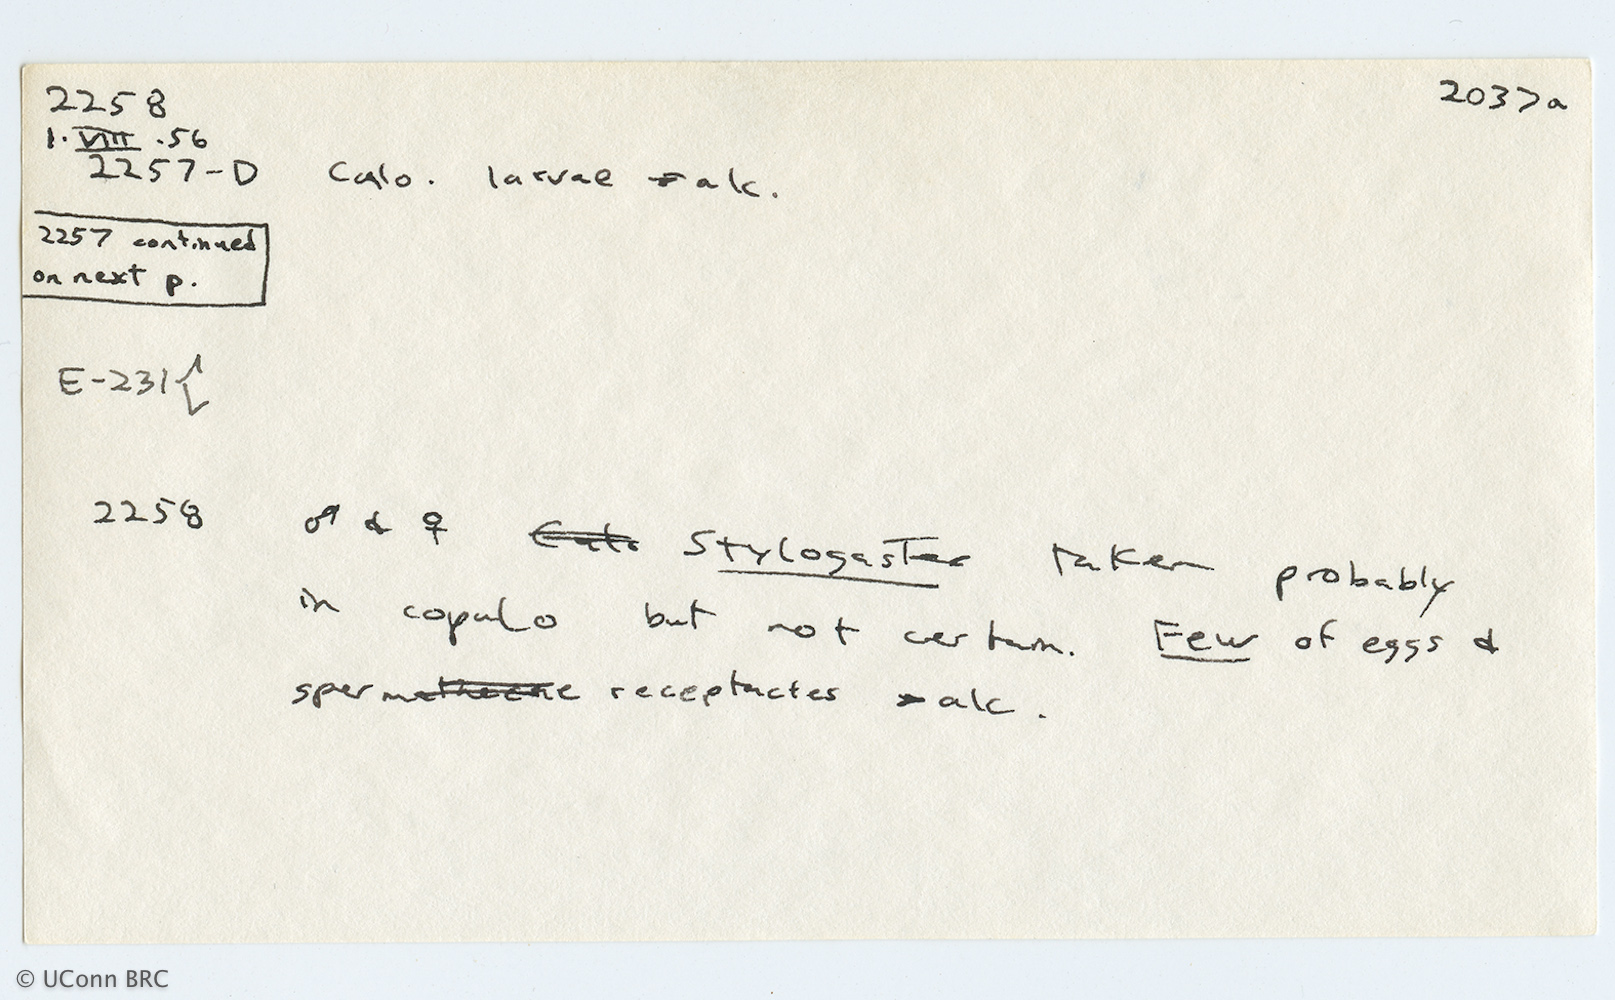 2258 2037a
1.VIII.56
2257-D Calo. larvae → alc.
2257 continued
on next p.
E-231 {
2258 ♂ & ♀ Calo Stylogaster taken probably
in copulo but not certain. Few of eggs &
spermathecae receptacles → alc.
© UConn BRC